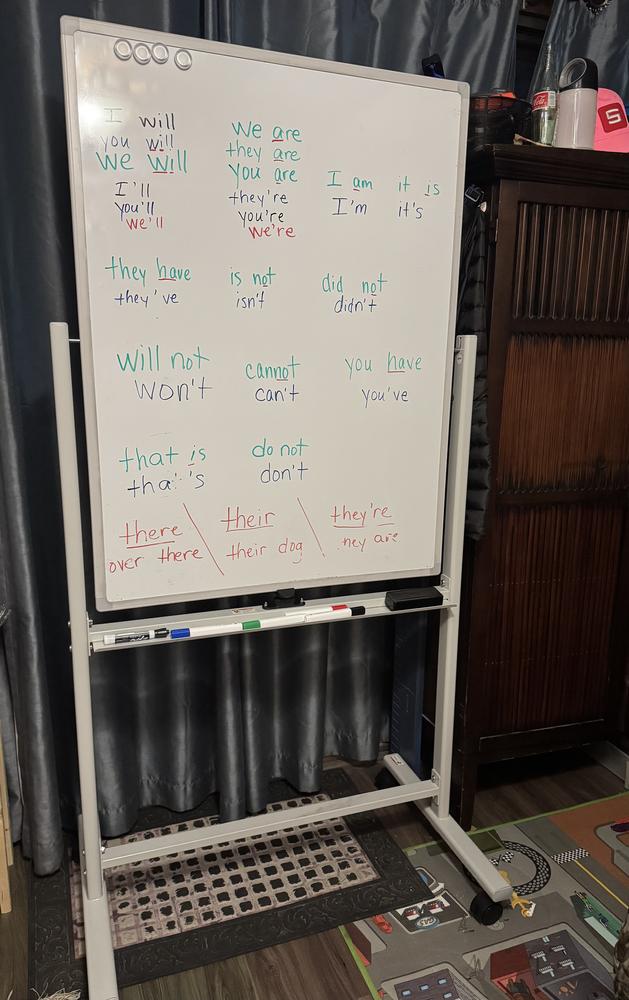 I will
you will
we will
I'll
you'll
we'll
we are
they are
you are
they're
you're
we're
I am
I'm
it is
it's
they have
they've
is not
isn't
did not
didn't
will not
won't
cannot
can't
you have
you've
that is
tha 's
do not
don't
there
over there
their
their dog
they're
hey are
Coca-Cola
S
GAS